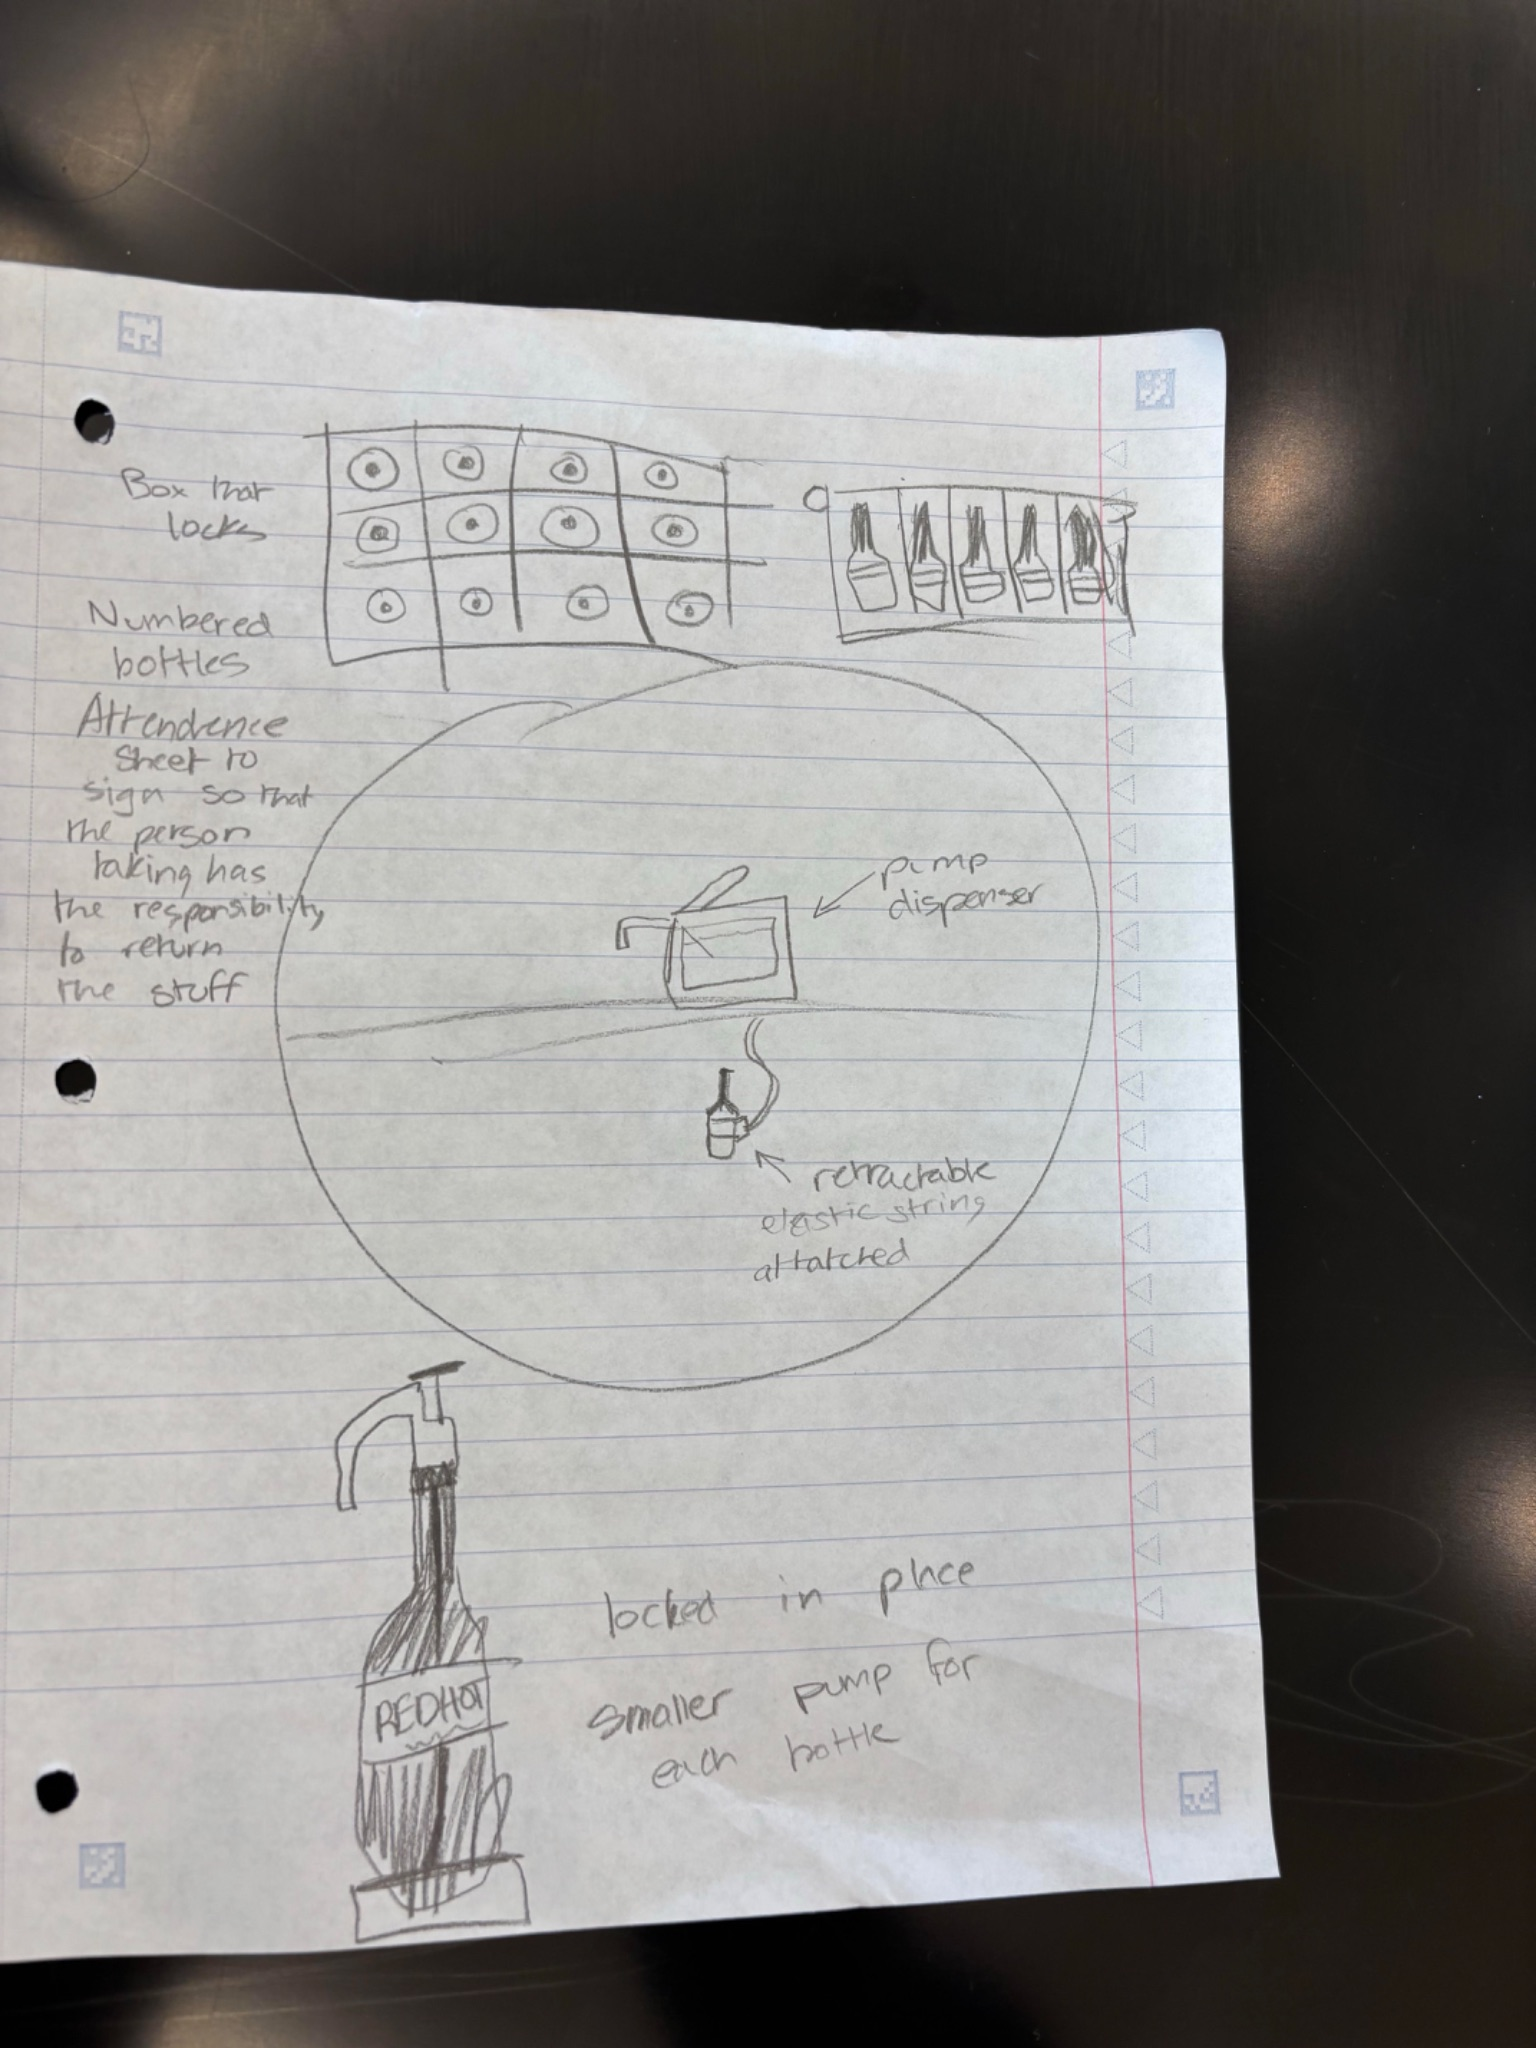 Box that
locks
Numbered
bottles
Attendence
Sheet to
sign so that
the person
taking has
the responsibility
to return
the stuff
pump
dispenser
retractable
elastic string
attatched
REDHOT
locked in place
smaller pump for
each bottle